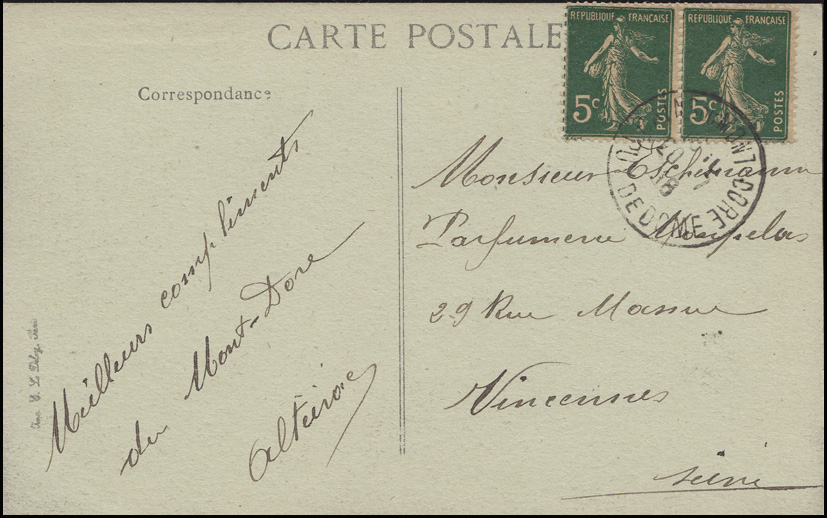 CARTE POSTALE
REPUBLIQUE FRANÇAISE
5c
POSTES
REPUBLIQUE FRANÇAISE
5c
POSTES
MONT-DORE
PUY DE DOME
20
18
Correspondance
Meilleurs compliments
du Mont-Dore
Monsieur
Parfumerie Monpelas
29 Rue Massue
Vincennes
Seine